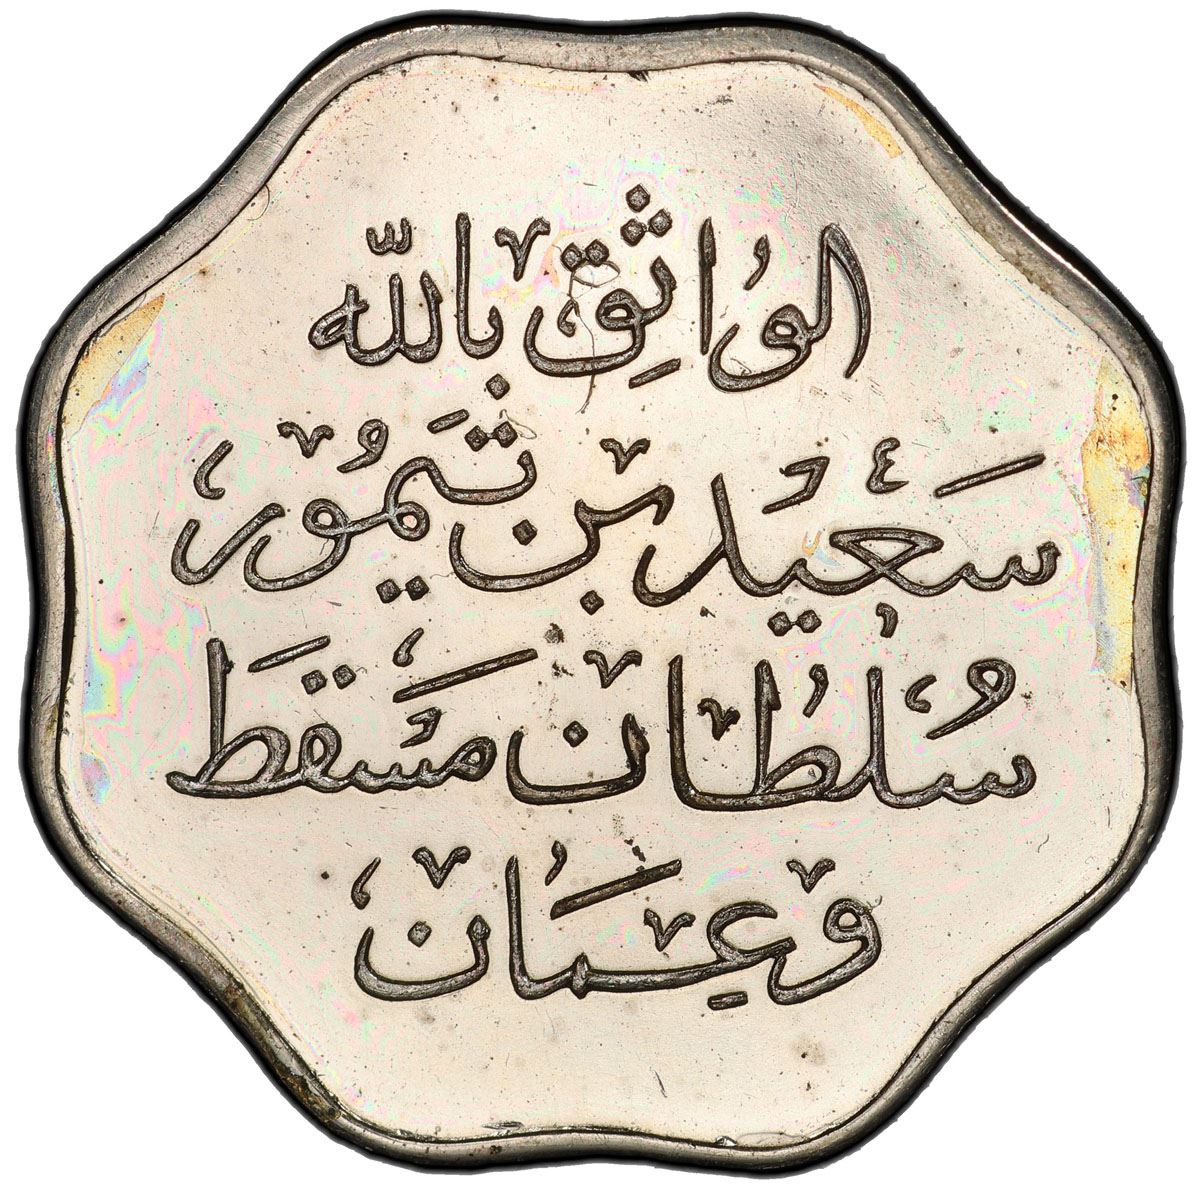 الواثق بالله
سعيد بن تيمور
سلطان مسقط
وعمان